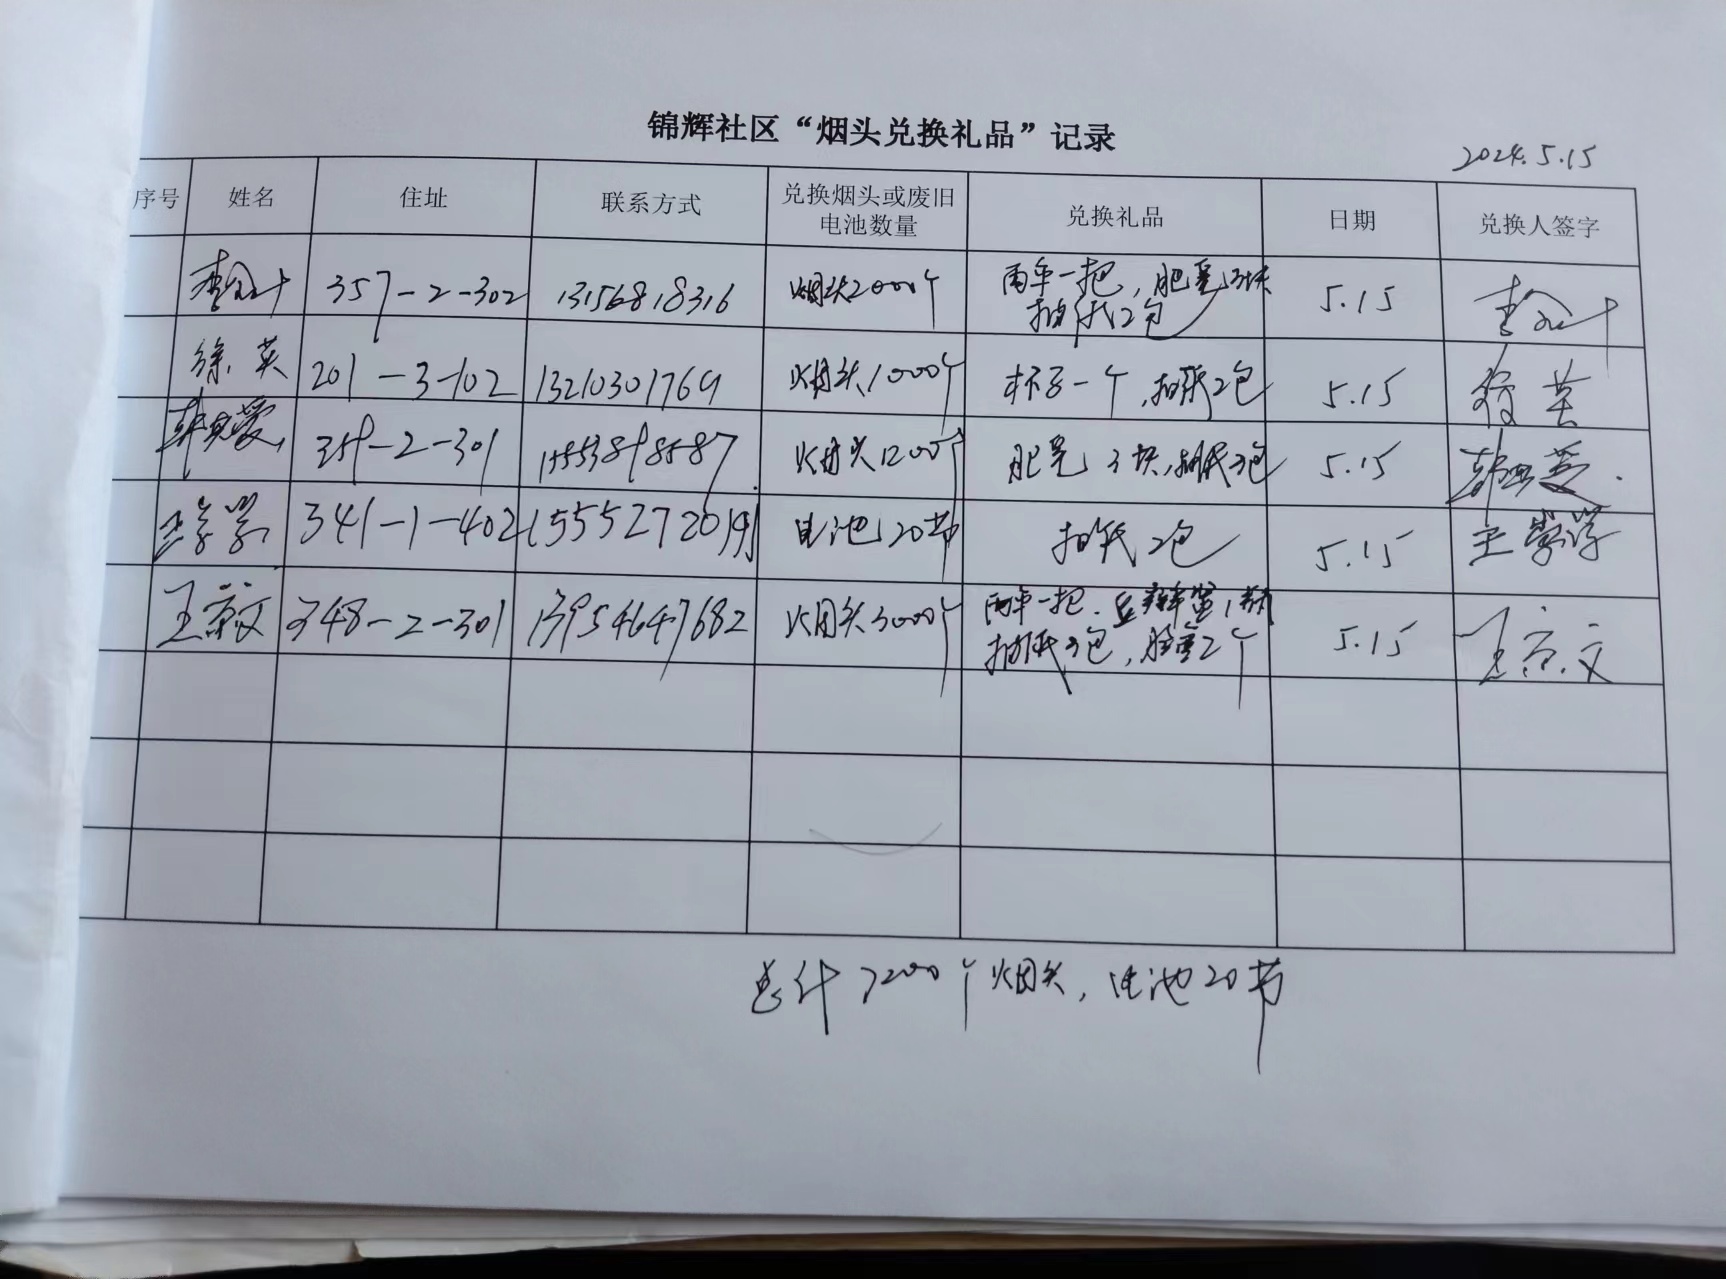 锦辉社区“烟头兑换礼品”记录
2024.5.15
序号 姓名 住址 联系方式 兑换烟头或废旧电池数量 兑换礼品 日期 兑换人签字
357-2-302 13156818316 烟头2000个 雨伞一把，肥皂3块 抽纸2包 5.15
徐英 201-3-102 13210301769 烟头1000个 杯子一个，抽纸2包 5.15 徐英
359-2-301 15553898587 烟头1200个 肥皂3块，抽纸3包 5.15
341-1-402 电池20节 抽纸2包 5.15
王京文 348-2-301 13954647682 烟头3000个 雨伞一把. 抽纸3包, 5.15 王京文
总计7200个烟头，电池20节